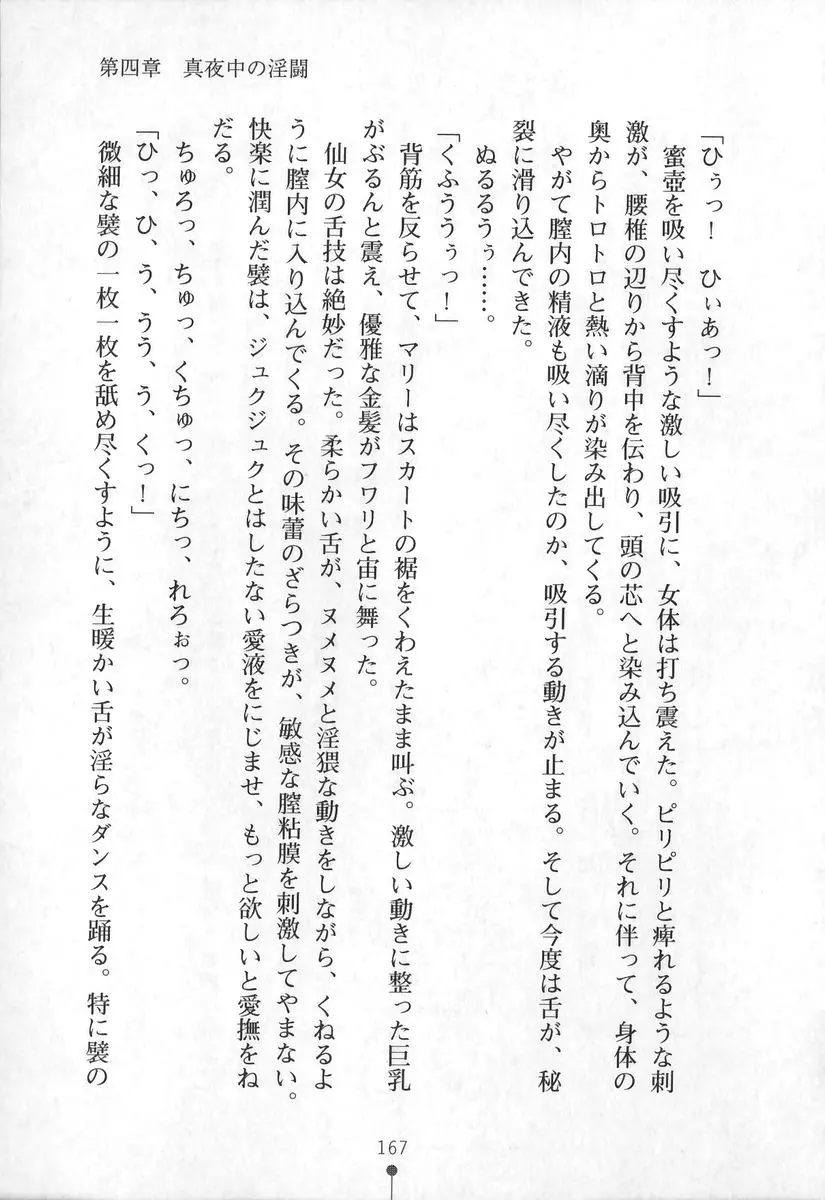 第四章　真夜中の淫闘
「ひぅっ！　ひぃあっ！」
　蜜壺を吸い尽くすような激しい吸引に、女体は打ち震えた。ピリピリと痺れるような刺
激が、腰椎の辺りから背中を伝わり、頭の芯へと染み込んでいく。それに伴って、身体の
奥からトロトロと熱い滴りが染み出してくる。
　やがて膣内の精液も吸い尽くしたのか、吸引する動きが止まる。そして今度は舌が、秘
裂に滑り込んできた。
　ぬるるうぅ……。
「くふううぅっ！」
　背筋を反らせて、マリーはスカートの裾をくわえたまま叫ぶ。激しい動きに整った巨乳
がぶるんと震え、優雅な金髪がフワリと宙に舞った。
　仙女の舌技は絶妙だった。柔らかい舌が、ヌメヌメと淫猥な動きをしながら、くねるよ
うに膣内に入り込んでくる。その味蕾のざらつきが、敏感な膣粘膜を刺激してやまない。
快楽に潤んだ襞は、ジュクジュクとはしたない愛液をにじませ、もっと欲しいと愛撫をね
だる。
　ちゅろっ、ちゅっ、くちゅっ、にちっ、れろぉっ。
「ひっ、ひ、う、うう、う、くっ！」
　微細な襞の一枚一枚を舐め尽くすように、生暖かい舌が淫らなダンスを踊る。特に襞の
167